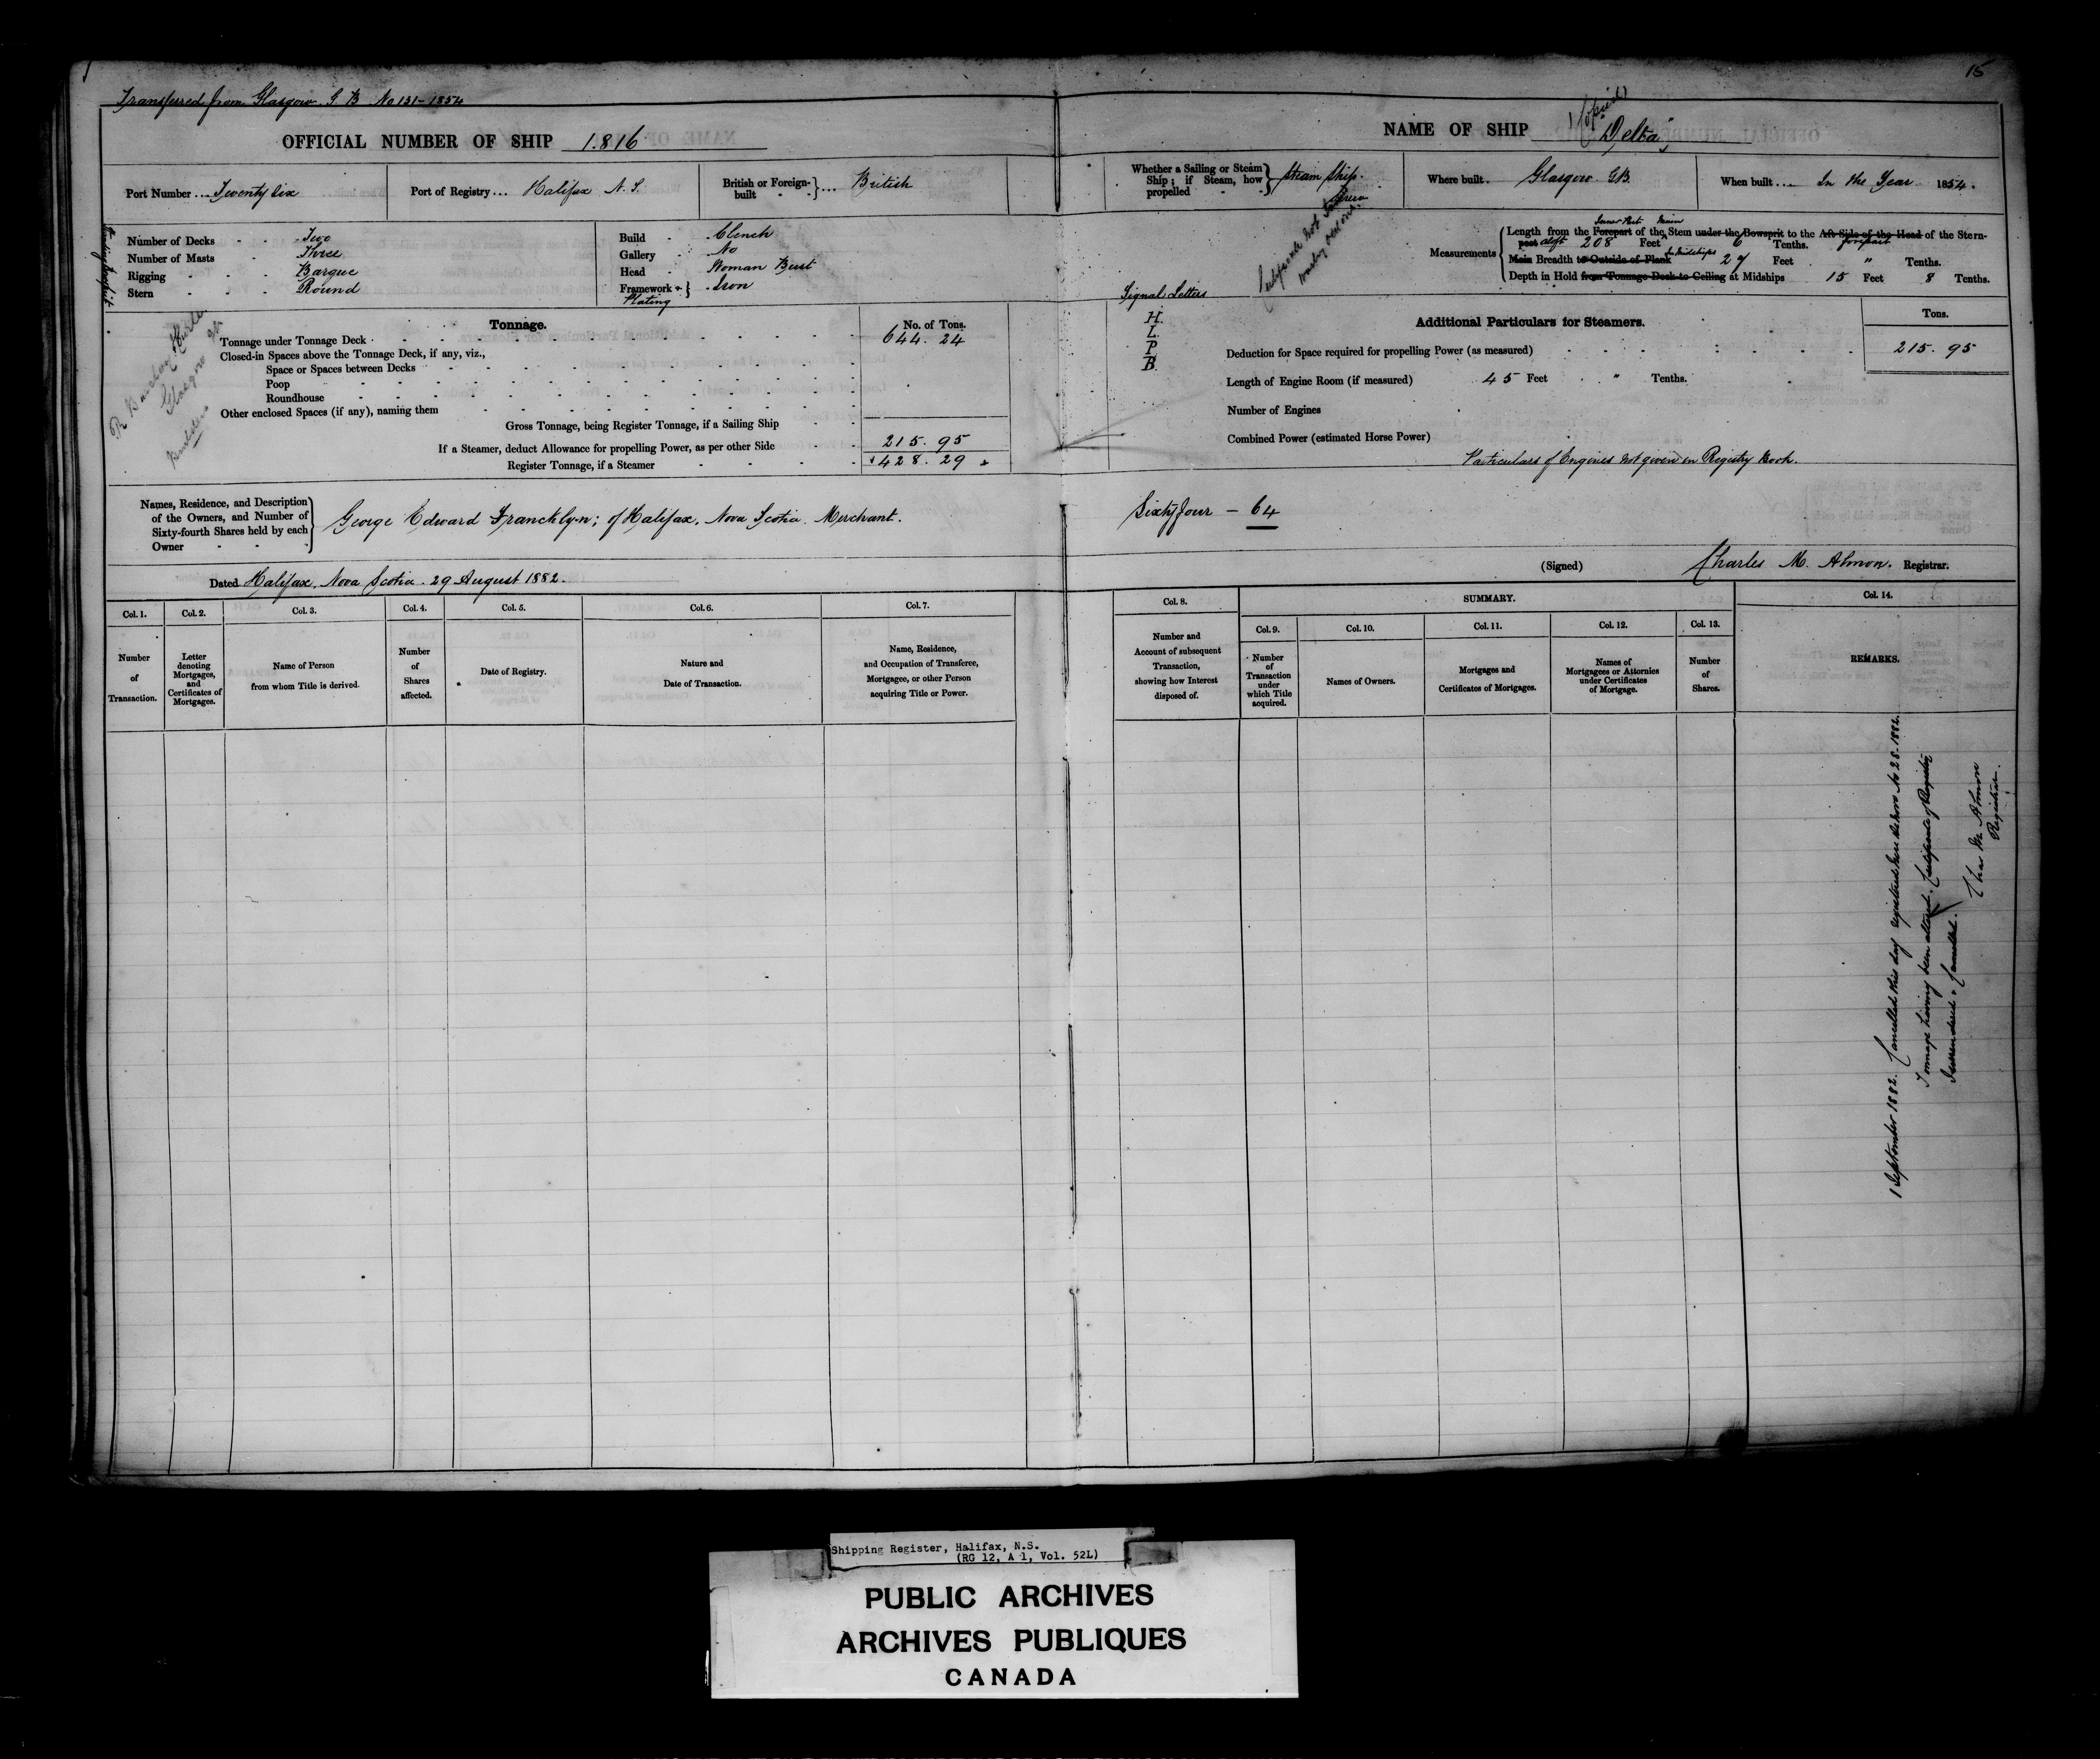 15
Transferred from Glasgow G B No 131-1854
OFFICIAL NUMBER OF SHIP 1.816
NAME OF SHIP "Delta"
Port Number ... Twenty Six
Port of Registry ... Halifax N.S.
British or Foreign-built } ... British
Whether a Sailing or Steam Ship; if Steam, how propelled } Steam Ship. Screw
Where built. Glasgow GB.
When built ... In the Year 1854.
Number of Decks - - Two
Number of Masts - - Three
Rigging - - - Barque
Stern - - - Round
Build - Clench
Gallery - No
Head - Woman Bust
Framework + Plating } Iron
Measurements { Length from the Forepart of the Stem under the Bowsprit to the Aft Side of the Head of the Stern-
post aloft 208 Feet 6 Tenths.
Main Breadth to Outside of Plank In Midships 27 Feet " Tenths.
Depth in Hold from Tonnage Deck to Ceiling at Midships 15 Feet 8 Tenths.
Signal Letters
H.
L.
P
B.
Builders
Glasgow
Tonnage.
No. of Tons.
Tonnage under Tonnage Deck 644. 24
Closed-in Spaces above the Tonnage Deck, if any, viz.,
Space or Spaces between Decks
Poop
Roundhouse
Other enclosed Spaces (if any), naming them
Gross Tonnage, being Register Tonnage, if a Sailing Ship
If a Steamer, deduct Allowance for propelling Power, as per other Side 215. 95
Register Tonnage, if a Steamer 428. 29
Additional Particulars for Steamers.
Tons.
Deduction for Space required for propelling Power (as measured) 215. 95
Length of Engine Room (if measured) 45 Feet " Tenths.
Number of Engines
Combined Power (estimated Horse Power)
Particulars of Engines not given in Registry Book.
Names, Residence, and Description
of the Owners, and Number of
Sixty-fourth Shares held by each
Owner
George Edward Francklyn; of Halifax, Nova Scotia. Merchant.
Sixty four - 64
Dated Halifax, Nova Scotia. 29 August 1882.
(Signed) Charles M. Almon. Registrar.
Col. 1.
Number
of
Transaction.
Col. 2.
Letter
denoting
Mortgages,
and
Certificates of
Mortgages.
Col. 3.
Name of Person
from whom Title is derived.
Col. 4.
Number
of
Shares
affected.
Col. 5.
Date of Registry.
Col. 6.
Nature and
Date of Transaction.
Col. 7.
Name, Residence,
and Occupation of Transferee,
Mortgagee, or other Person
acquiring Title or Power.
Col. 8.
Number and
Account of subsequent
Transaction,
showing how Interest
disposed of.
SUMMARY.
Col. 9.
Number
of
Transaction
under
which Title
acquired.
Col. 10.
Names of Owners.
Col. 11.
Mortgages and
Certificates of Mortgages.
Col. 12.
Names of
Mortgagees or Attornies
under Certificates
of Mortgage.
Col. 13.
Number
of
Shares.
Col. 14.
REMARKS.
1 September 1882. Cancelled this day registered here de novo No 28-1882.
Tonnage having been altered. Certificate of Registry
Surrendered & Cancelled.
Chas M Almon
Registrar.
Shipping Register, Halifax, N.S.
(RG 12, A 1, Vol. 52L)
PUBLIC ARCHIVES
ARCHIVES PUBLIQUES
CANADA